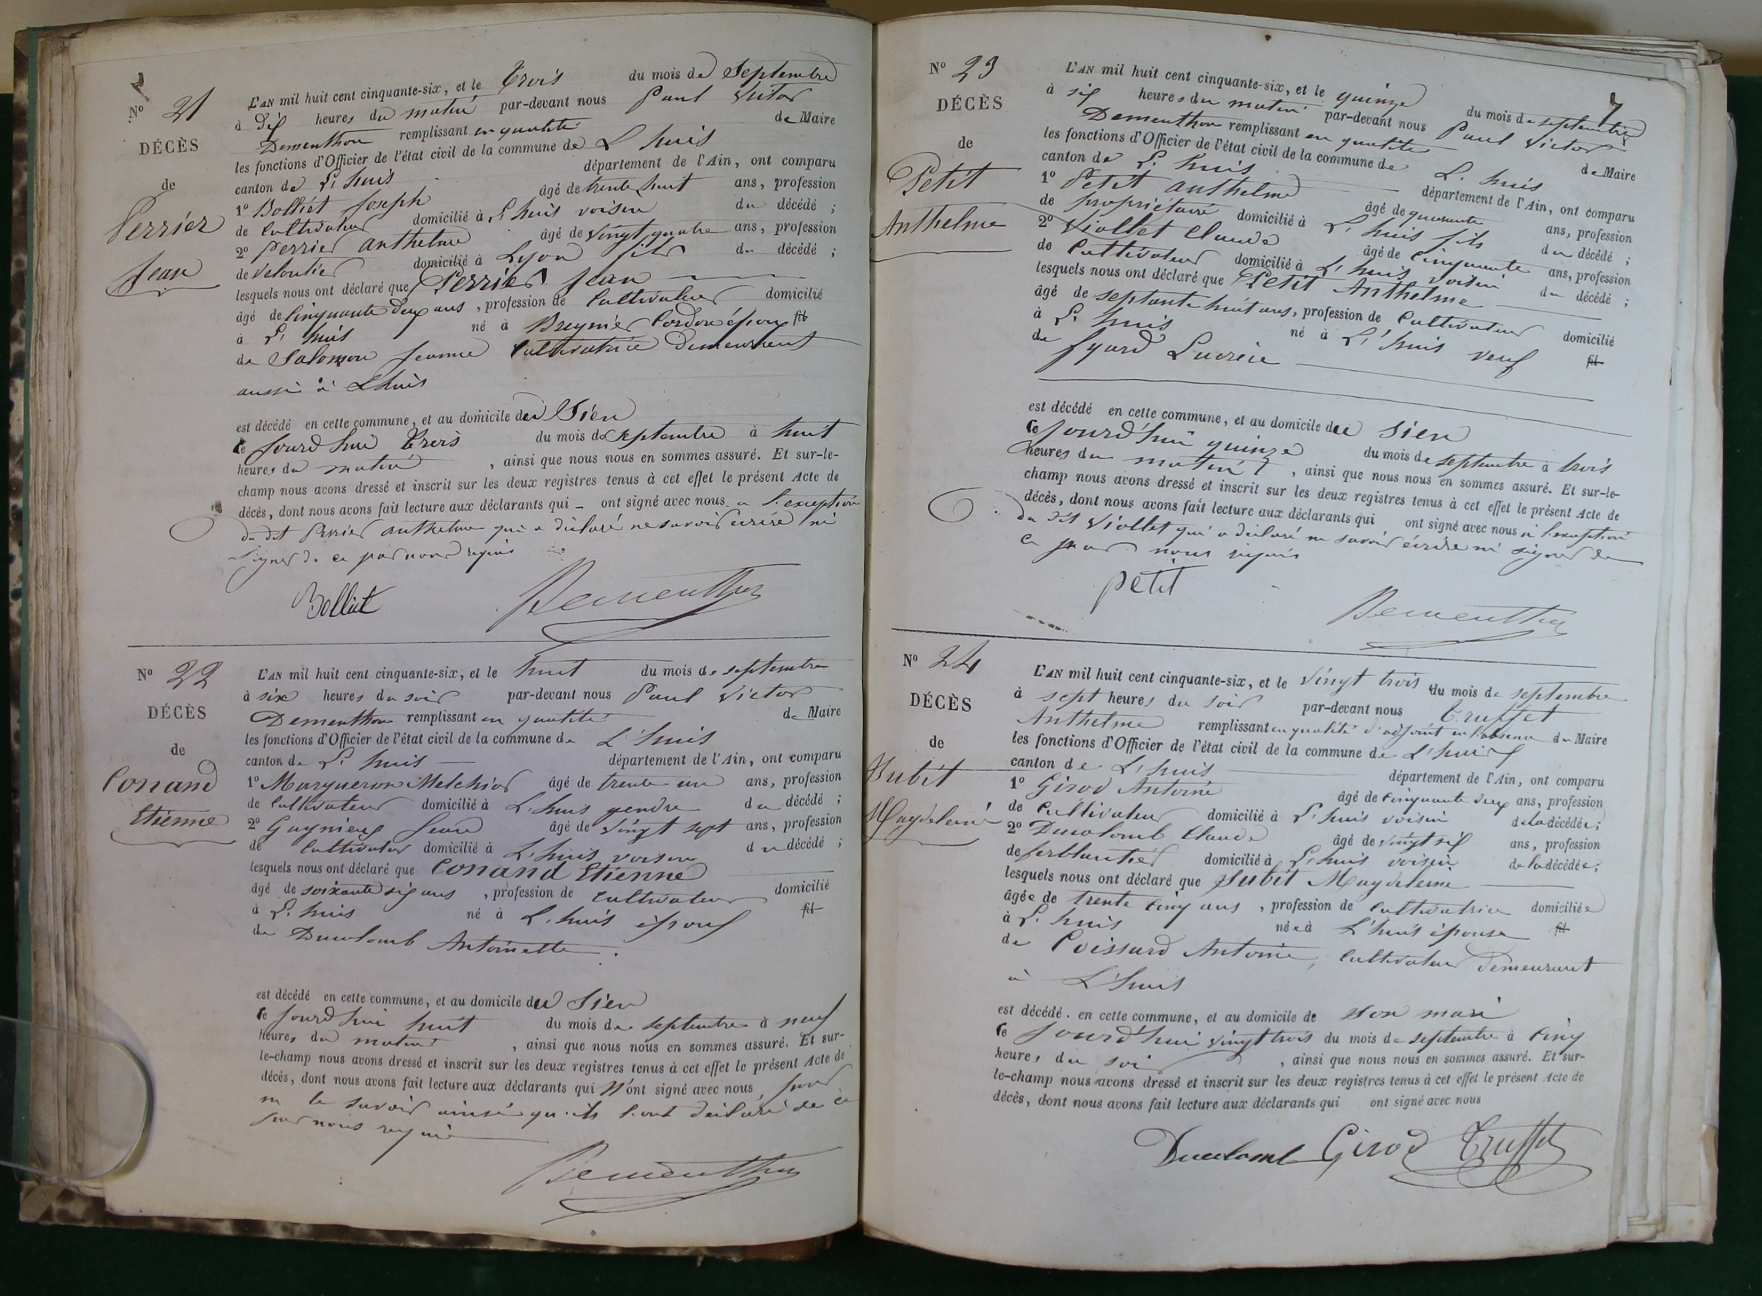 N° 21
DÉCÈS
de
Perrier
Jean
L'AN mil huit cent cinquante-six, et le trois du mois de Septembre
à dix heures du matin par-devant nous Paul Victor
Dementhon remplissant en qualité de Maire
les fonctions d'Officier de l'état civil de la commune de L'huis
canton de L'huis département de l'Ain, ont comparu
1° Bolliet Joseph âgé de trente huit ans, profession
de Cultivateur domicilié à L'huis voisin du décédé ;
2° Perrier Anthelme âgé de vingt quatre ans, profession
de veloutier domicilié à Lyon fils du décédé ;
lesquels nous ont déclaré que Perrier Jean
âgé de cinquante deux ans, profession de Cultivateur domicilié
à L'huis né à Breynier Cordon époux fil
de Salomon Jeanne Cultivatrice demeurant
aussi à Lhuis
est décédé en cette commune, et au domicile du Sien
ce jourd'hui trois du mois de septembre à huit
heures du matin, ainsi que nous nous en sommes assuré. Et sur-le-
champ nous avons dressé et inscrit sur les deux registres tenus à cet effet le présent Acte de
décès, dont nous avons fait lecture aux déclarants qui ont signé avec nous a l'exception
du dit Perrier anthelme qui a déclaré ne savoir écrire ni
signer de ce par nous requis
Bolliet Dementhon
N° 22
DÉCÈS
de
Conand
Etienne
L'AN mil huit cent cinquante-six, et le huit du mois de septembre
à six heures du soir par-devant nous Paul Victor
Dementhon remplissant en qualité de Maire
les fonctions d'Officier de l'état civil de la commune de L'huis
canton de L'huis département de l'Ain, ont comparu
1° Margueron Melchior âgé de trente un ans, profession
de Cultivateur domicilié à L'huis gendre du décédé ;
2° Gagnieux âgé de vingt sept ans, profession
de Cultivateur domicilié à L'huis voisin du décédé ;
lesquels nous ont déclaré que Conand Etienne
âgé de soixante six ans, profession de Cultivateur domicilié
à L'huis né à L'huis époux fil
de Ducolomb Antoinette.
est décédé en cette commune, et au domicile du Sien
ce jourd'hui huit du mois de septembre à neuf
heures du matin, ainsi que nous nous en sommes assuré. Et sur-
le-champ nous avons dressé et inscrit sur les deux registres tenus à cet effet le présent Acte de
décès, dont nous avons fait lecture aux déclarants qui n'ont signé avec nous pour
ne le savoir ainsi qu'ils l'ont déclaré de ce
par nous requis
Dementhon
7
N° 23
DÉCÈS
de
Petit
Anthelme
L'AN mil huit cent cinquante-six, et le quinze du mois de septembre
à six heures du matin par-devant nous Paul Victor
Dementhon remplissant en qualité de Maire
les fonctions d'Officier de l'état civil de la commune de L'huis
canton de L'huis département de l'Ain, ont comparu
1° Petit anthelme âgé de quarante ans, profession
de propriétaire domicilié à L'huis fils du décédé ;
2° Viollet Claude âgé de cinquante ans, profession
de Cultivateur domicilié à L'huis voisin du décédé ;
lesquels nous ont déclaré que Petit Anthelme
âgé de septante huit ans, profession de Cultivateur domicilié
à L'huis né à L'huis veuf fil
de Lucrèce
est décédé en cette commune, et au domicile du sien
ce jourd'hui quinze du mois de septembre à trois
heures du matin, ainsi que nous nous en sommes assuré. Et sur-le-
champ nous avons dressé et inscrit sur les deux registres tenus à cet effet le présent Acte de
décès, dont nous avons fait lecture aux déclarants qui ont signé avec nous à l'exception
du dit Viollet qui a déclaré ne savoir écrire ni signer de
ce par nous requis
petit Dementhon
N° 24
DÉCÈS
de
Jubit
Magdeleine
L'AN mil huit cent cinquante-six, et le vingt trois du mois de septembre
à sept heures du soir par-devant nous Truffet
Anthelme remplissant en qualité d'adjoint en l'absence du Maire
les fonctions d'Officier de l'état civil de la commune de L'huis
canton de L'huis département de l'Ain, ont comparu
1° Girod Antoine âgé de cinquante deux ans, profession
de Cultivateur domicilié à L'huis voisin de la décédée ;
2° Ducolomb Claude âgé de vingt six ans, profession
de ferblantier domicilié à L'huis voisin de la décédée ;
lesquels nous ont déclaré que Jubit Magdeleine
âgée de trente cinq ans, profession de Cultivatrice domiciliée
à L'huis née à L'huis épouse fil
de Poissard Antoine, Cultivateur demeurant
à L'huis
est décédé en cette commune, et au domicile de son mari
ce jourd'hui vingt trois du mois de septembre à cinq
heures du soir, ainsi que nous nous en sommes assuré. Et sur-
le-champ nous avons dressé et inscrit sur les deux registres tenus à cet effet le présent Acte de
décès, dont nous avons fait lecture aux déclarants qui ont signé avec nous
Ducolomb Girod Truffet